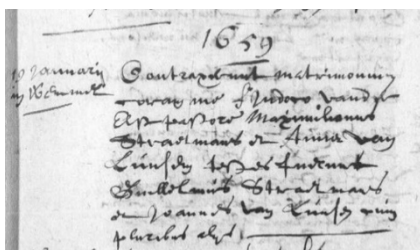 1659
19 Januarij Contraxerunt matrimonium
in Wemmel coram me Isidoro vander
Asst pastore Maximilianus
Straetmans et Anna van
Linsen testes fuerunt
Guillelmus Straetmans
et Joannes van Linsen cum
pluribus alijs